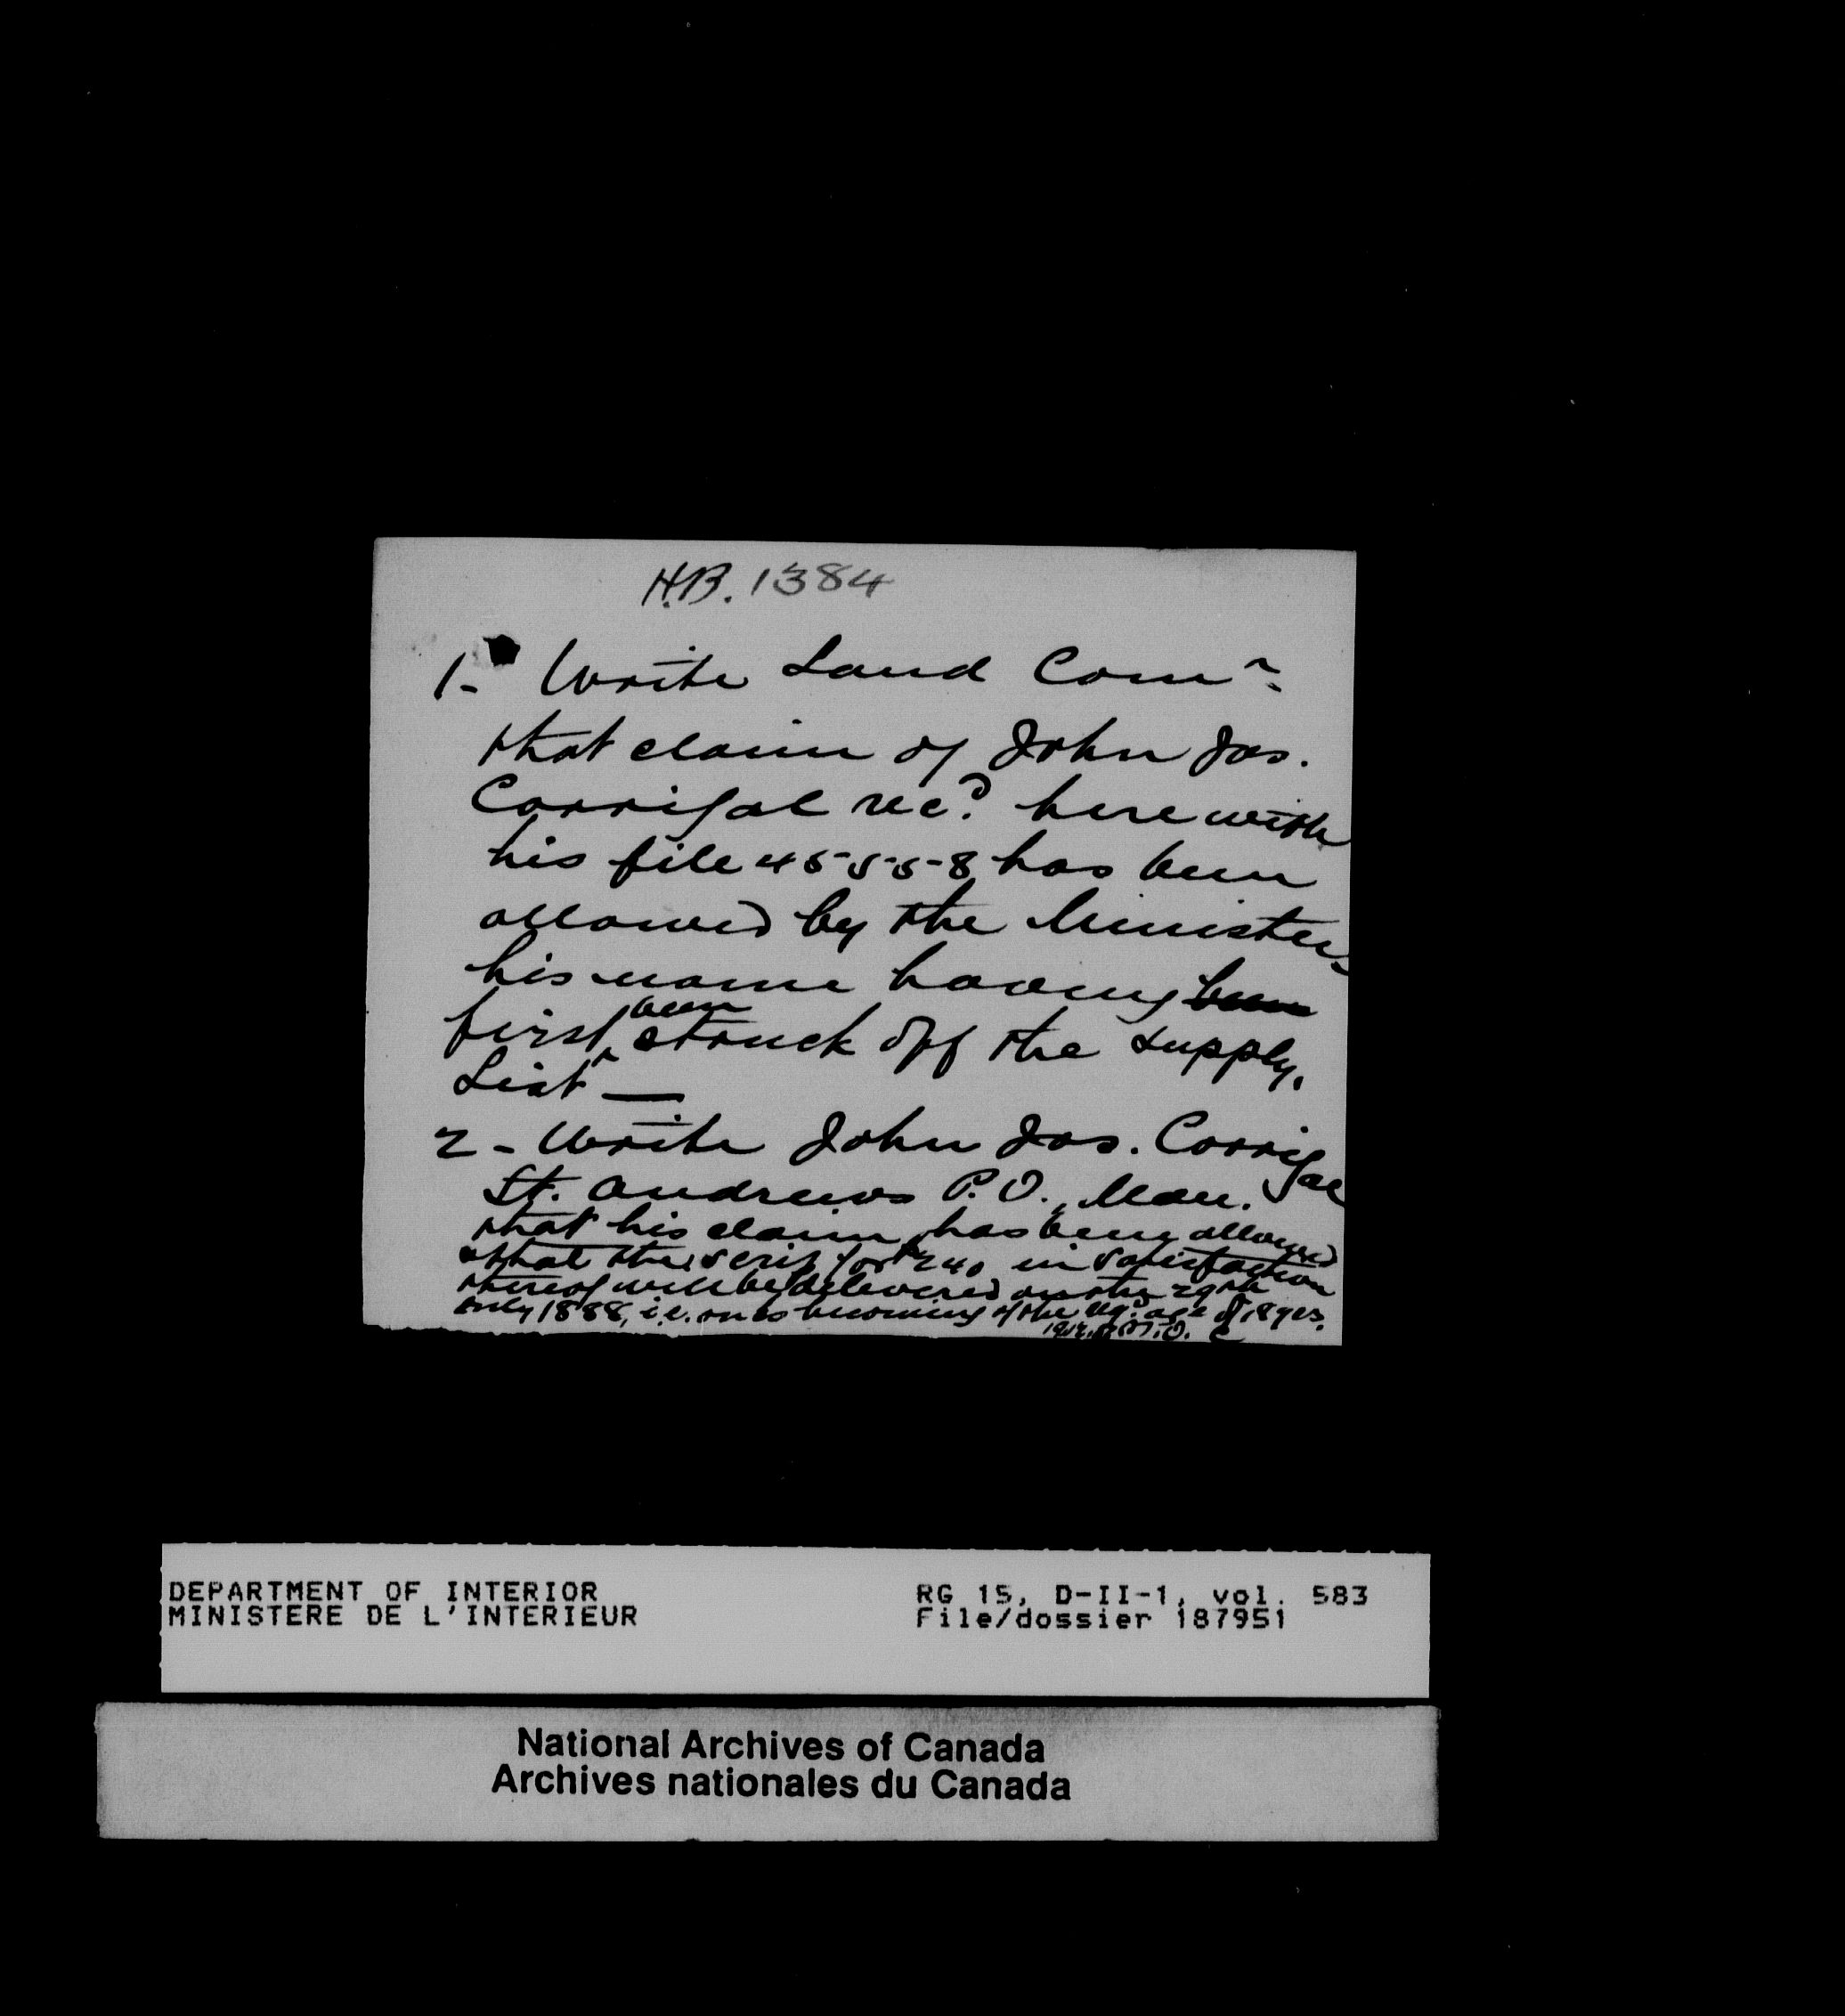 H.B. 1384
1. Write Land Comr.
that claim of John Jas.
Corrigal recd. here with
his file 45558 has been
allowed by the Minister
his name having been
first been struck off the supply.
List —
2 - Write John Jas. Corrigal
St. Andrews P.O., Man.
that his claim has being allowed
& that the scrip for $240 in satisfaction
thereof will be delivered on the 29th
July 1888, i.e. on his becoming of the reqd. age of 18 yrs.
DEPARTMENT OF INTERIOR
MINISTERE DE L'INTERIEUR
RG 15, D-II-1, vol. 583
File/dossier 187951
National Archives of Canada
Archives nationales du Canada